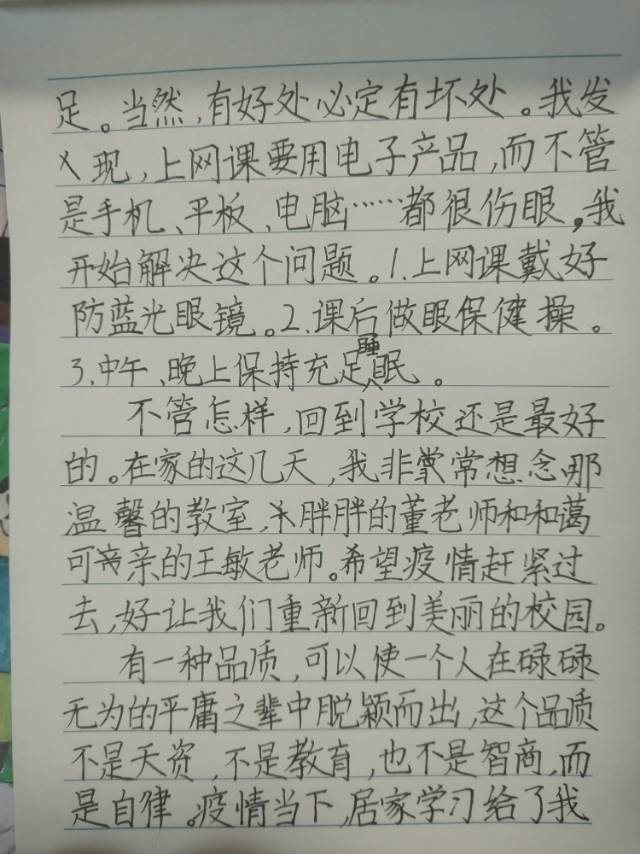 足。当然,有好处必定有坏处。我发
现,上网课要用电子产品,而不管
是手机、平板、电脑……都很伤眼,我
开始解决这个问题。1.上网课戴好
防蓝光眼镜。2.课后做眼保健操。
3.中午、晚上保持充足睡眠。
不管怎样,回到学校还是最好
的。在家的这几天,我非常想念那
温馨的教室,胖胖的董老师和和蔼
可亲的王敏老师。希望疫情赶紧过
去,好让我们重新回到美丽的校园。
有一种品质,可以使一个人在碌碌
无为的平庸之辈中脱颖而出,这个品质
不是天资,不是教育,也不是智商,而
是自律。疫情当下,居家学习给了我